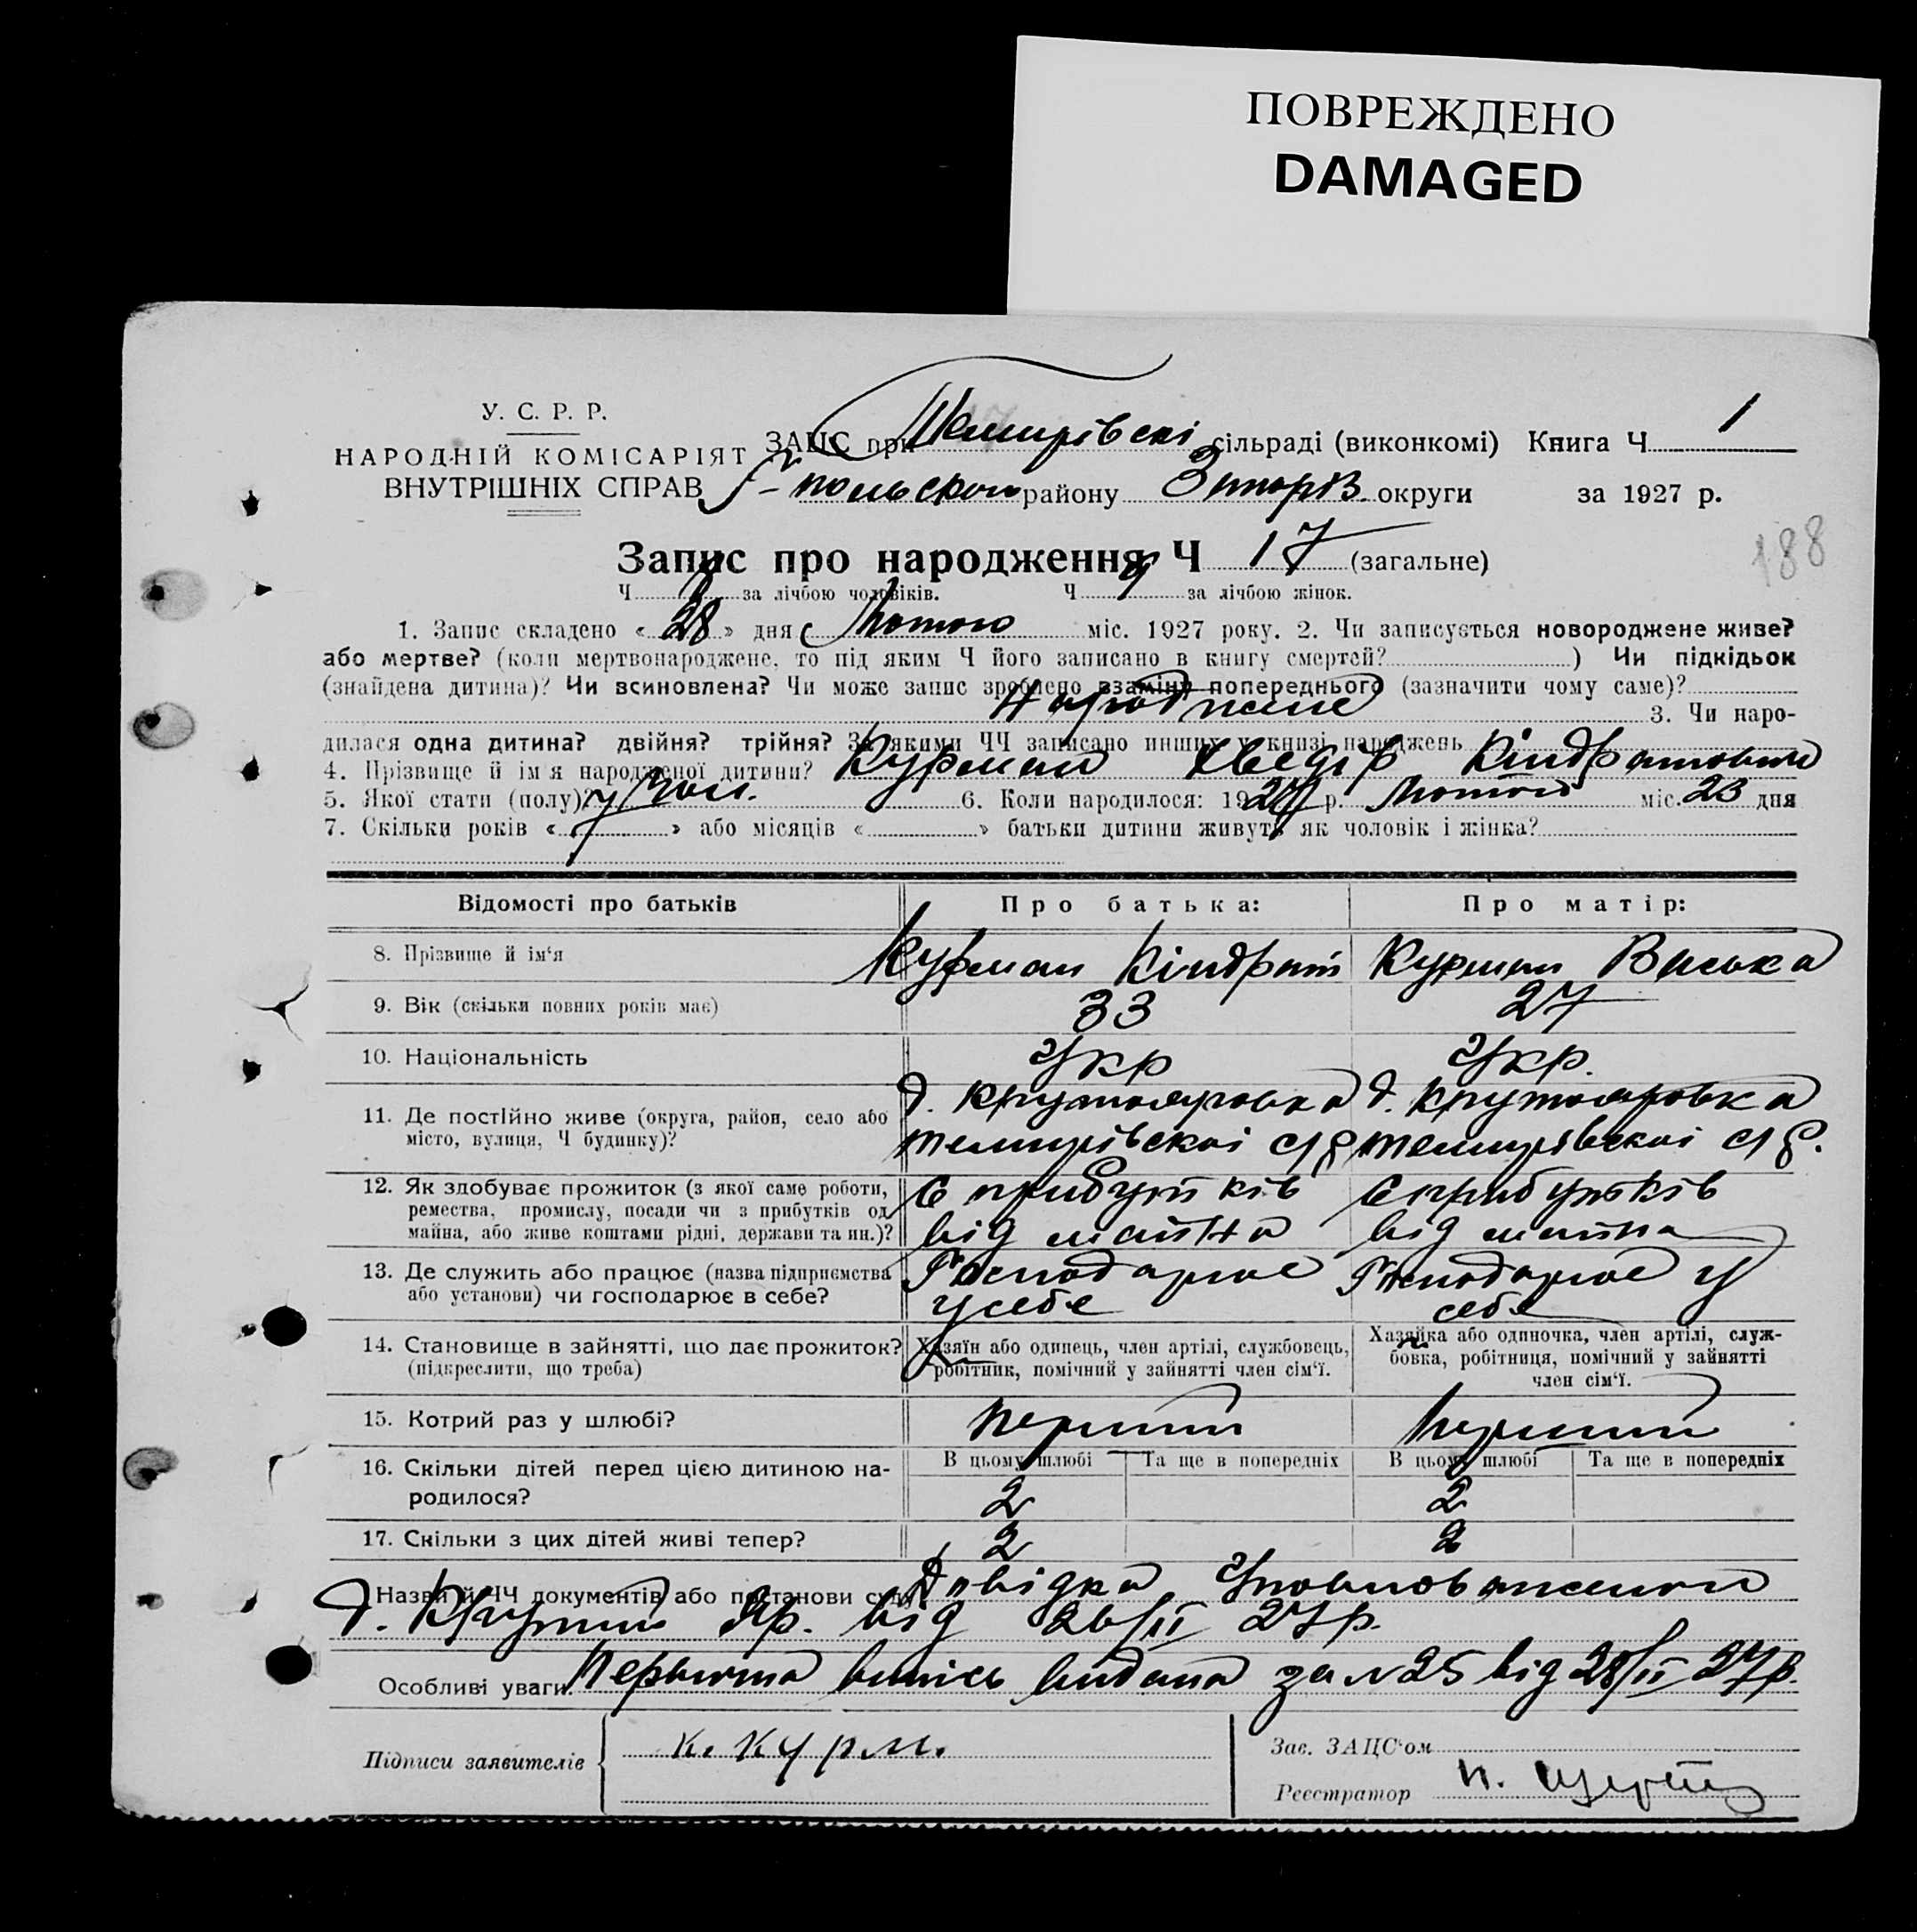 ПОВРЕЖДЕНО
DAMAGED
У. С. Р. Р.
НАРОДНІЙ КОМІСАРІЯТ
ВНУТРІШНІХ СПРАВ
ЗАЦС при Темирівскі сільраді (виконкомі) Книга Ч 1
Г-польского району Запоріз. округи за 1927 р.
188
Запис про народження Ч 17 (загальне)
Ч за лічбою чоловіків. Ч 9 за лічбою жінок.
1. Запис складено « 28 » дня Лютого міс. 1927 року. 2. Чи записується новороджене живе?
або мертве? (коли мертвонароджене, то під яким Ч його записано в книгу смертей? ) Чи підкідьок
(знайдена дитина)? Чи всиновлена? Чи може запис зроблено взаміну попереднього (зазначити чому саме)?
Народжене 3. Чи наро-
дилася одна дитина? двійня? трійня? За якими ЧЧ записано инших у книзі народжень
4. Прізвище й ім'я народженої дитини? Курман Хведір Кіндратович
5. Якої стати (полу)? Чол. 6. Коли народилося: 1927 р. Лютого міс. 23 дня
7. Скільки років « 7 » або місяців « » батьки дитини живуть як чоловік і жінка?
Відомості про батьків Про батька: Про матір:
8. Прізвище й ім'я Курман Кіндрат Курман Васька
9. Вік (скільки повних років має) 33 27
10. Національність Укр Укр.
11. Де постійно живе (округа, район, село або місто, вулиця, Ч будинку)?
д. Крутояровка д. Крутояровка
темирівскоі с/р темирівскоі с/р.
12. Як здобуває прожиток (з якої саме роботи,
ремества, промислу, посади чи з прибутків од
майна, або живе коштами рідні, держави та ин.)?
С прибутків С прибутків
від майна від майна
13. Де служить або працює (назва підприємства
або установи) чи господарює в себе?
Господарює Господарює у
у себе себе
14. Становище в зайнятті, що дає прожиток?
(підкреслити, що треба)
Хазяїн або одинець, член артілі, службовець,
робітник, помічний у зайнятті член сім'ї.
Хазяйка або одиночка, член артілі, служ-
бовка, робітниця, помічний у зайнятті
член сім'ї.
15. Котрий раз у шлюбі? перший перший
16. Скільки дітей перед цією дитиною на-
родилося?
В цьому шлюбі Та ще в попередніх В цьому шлюбі Та ще в попередніх
2 2
17. Скільки з цих дітей живі тепер? 2 2
Назви й ЧЧ документів або постанови суду Довідка Уповноваженого
д. Крутий Яр. від 26/II 27р.
Особливі уваги Первична випісь видана за №25 від 28/II 27р.
Підписи заявителів к. Курм.
Зав. ЗАЦС'ом
Реєстратор